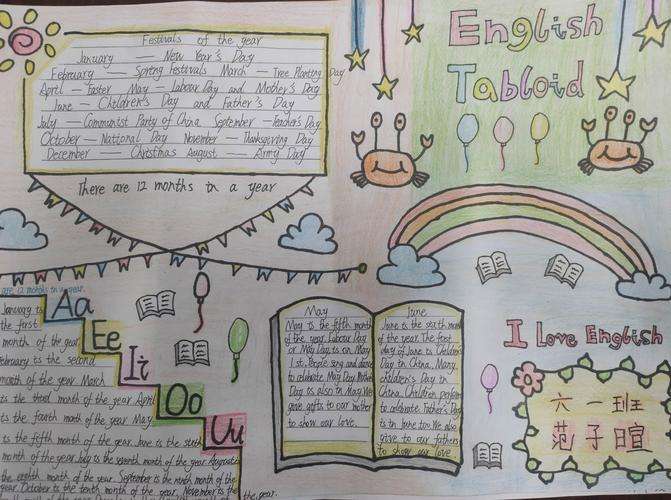 Festivals of the year
January — New Year's Day
February — Spring Festivals March — Tree Planting Day
April — Easter May — Labour Day and Mother's Day
June — Children's Day and Father's Day
July — Communist Party of China September — Teacher's Day
October — National Day November — Thanksgiving Day
December — Christmas August — Army Day
There are 12 months in a year
English
Tabloid
are 12 months in a year.
Aa
Ee
Ii
Oo
Uu
January is
the first
month of the year.
February is the second
month of the year March
is the third month of the year April
is the fourth month of the year May
is the fifth month of the year June is the sixth
month of the year July is the seventh month of the year August is
the eighth month of the year. September is the ninth month of the
year. October is the tenth month of the year. November is the
the year.
May
May is the fifth month
of the year. Labour Day
or May Day is on May
1st. People sing and dance
to celebrate May Day. Mother's
Day is also in May. We
give gifts to our mother
to show our love.
June
June is the sixth month
of the year. The first
day of June is Children's
Day in China. Many
children's Day in
China. Children perform
to celebrate. Father's Day
is in June too. We also
give to our fathers
to show our love
I Love English
六一班
范子暄